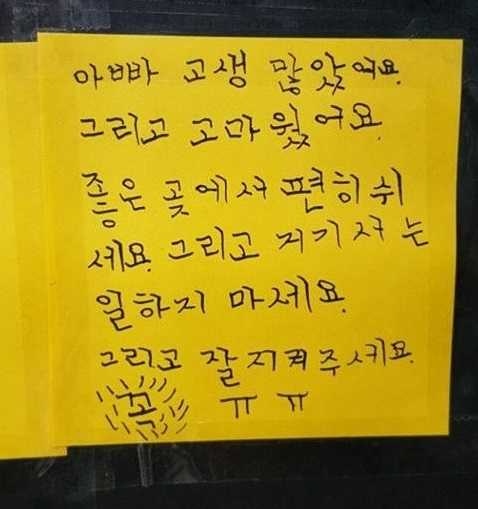 아빠 고생 많았어요.
그리고 고마웠어요.
좋은 곳에서 편히 쉬
세요. 그리고 저기서는
일하지 마세요.
그리고 잘 지켜주세요.
꼭 ㅠㅠ